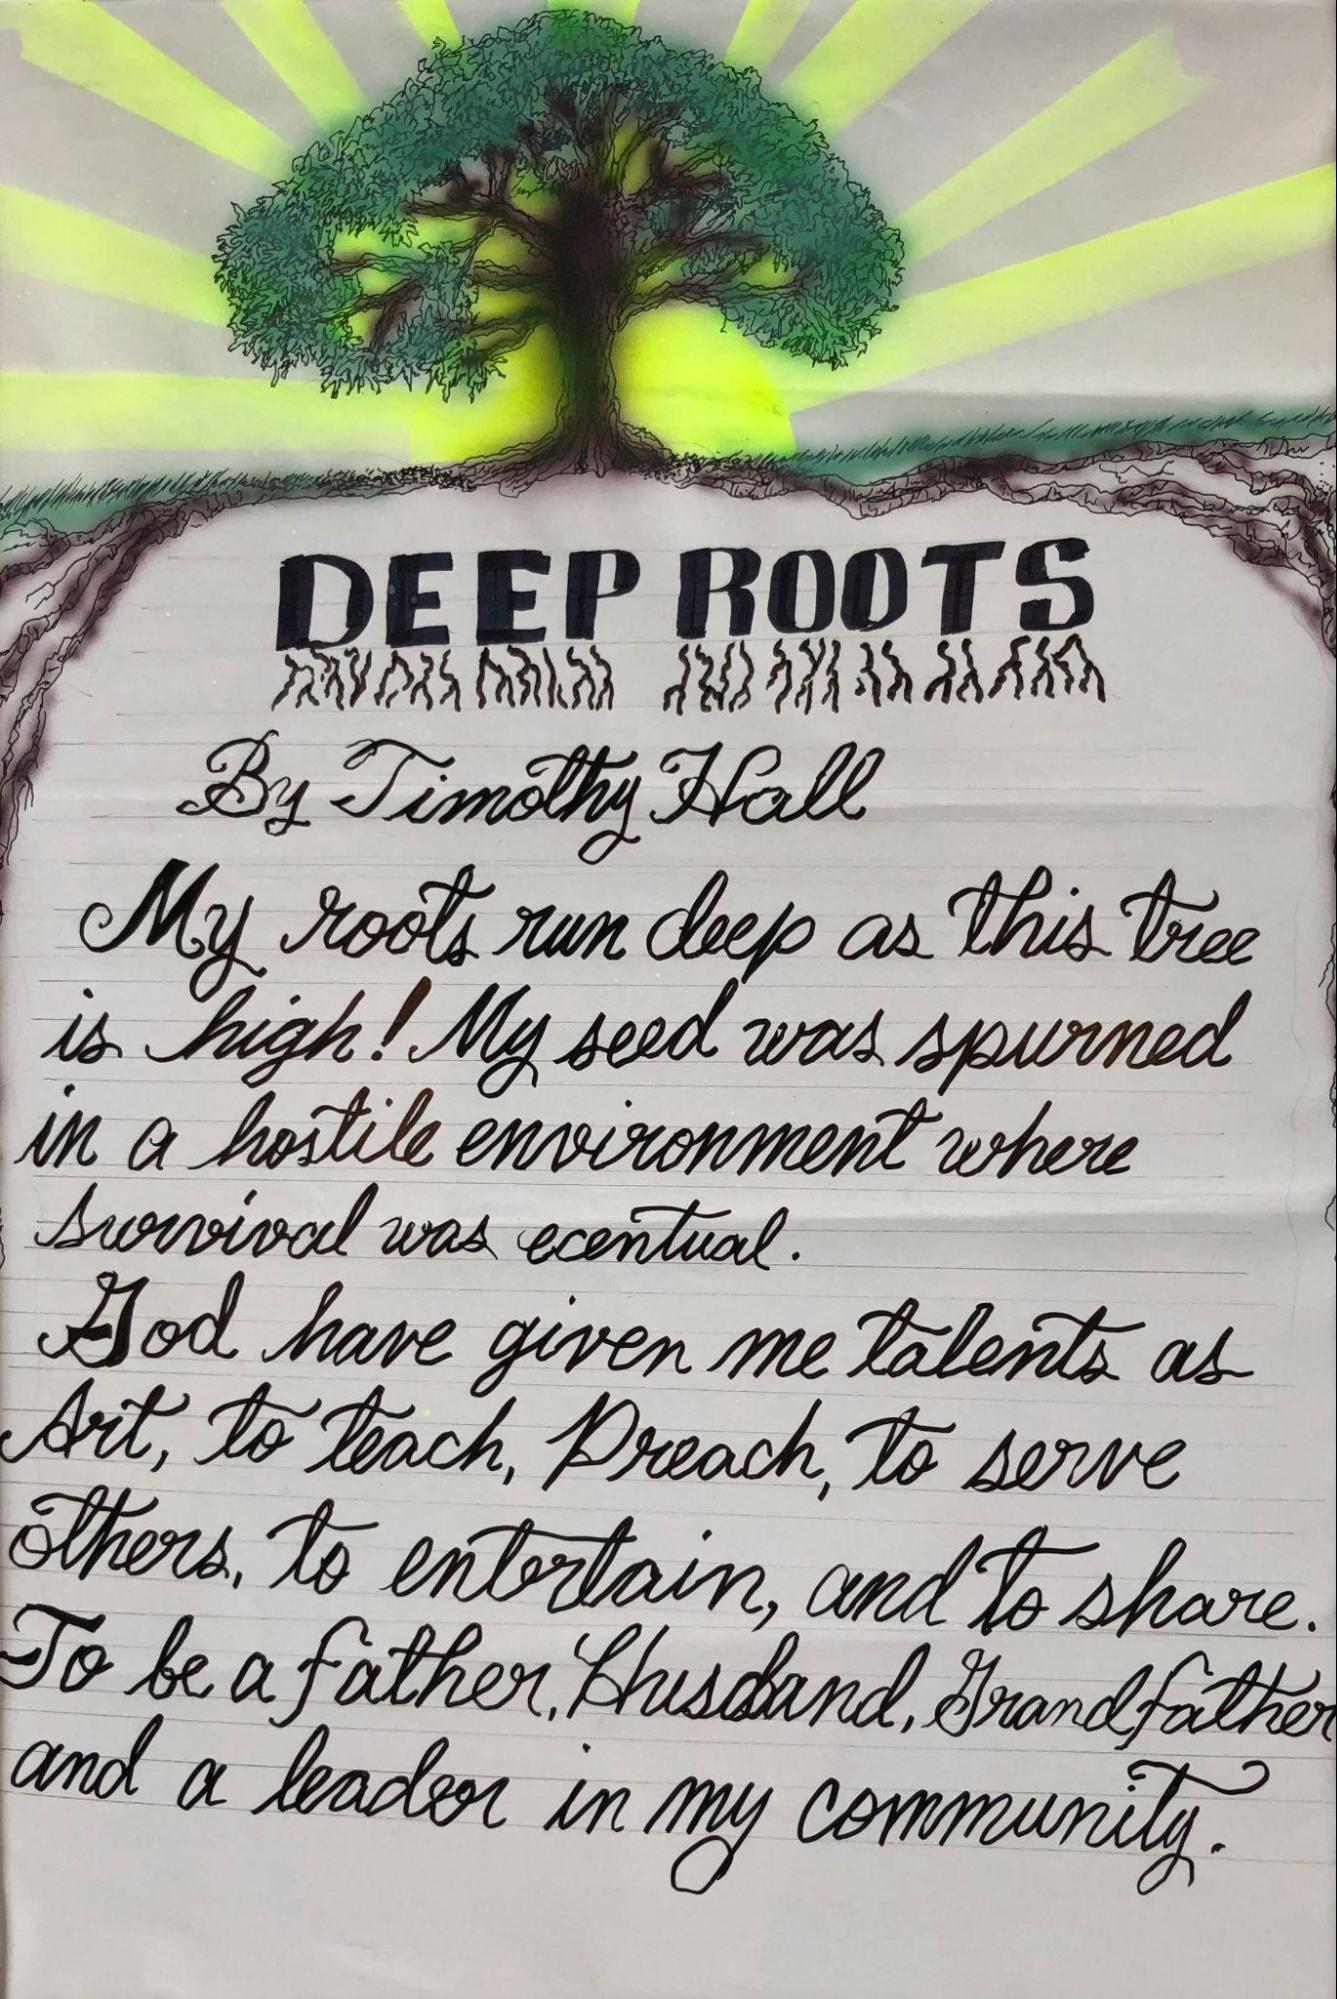 DEEP ROOTS
By Timothy Hall
My roots run deep as this tree
is high! My seed was spurned
in a hostile environment where
survival was ecentual.
God have given me talents as
Art, to teach, Preach, to serve
others, to entertain, and to share.
To be a father, Husband, Grandfather
and a leader in my community.